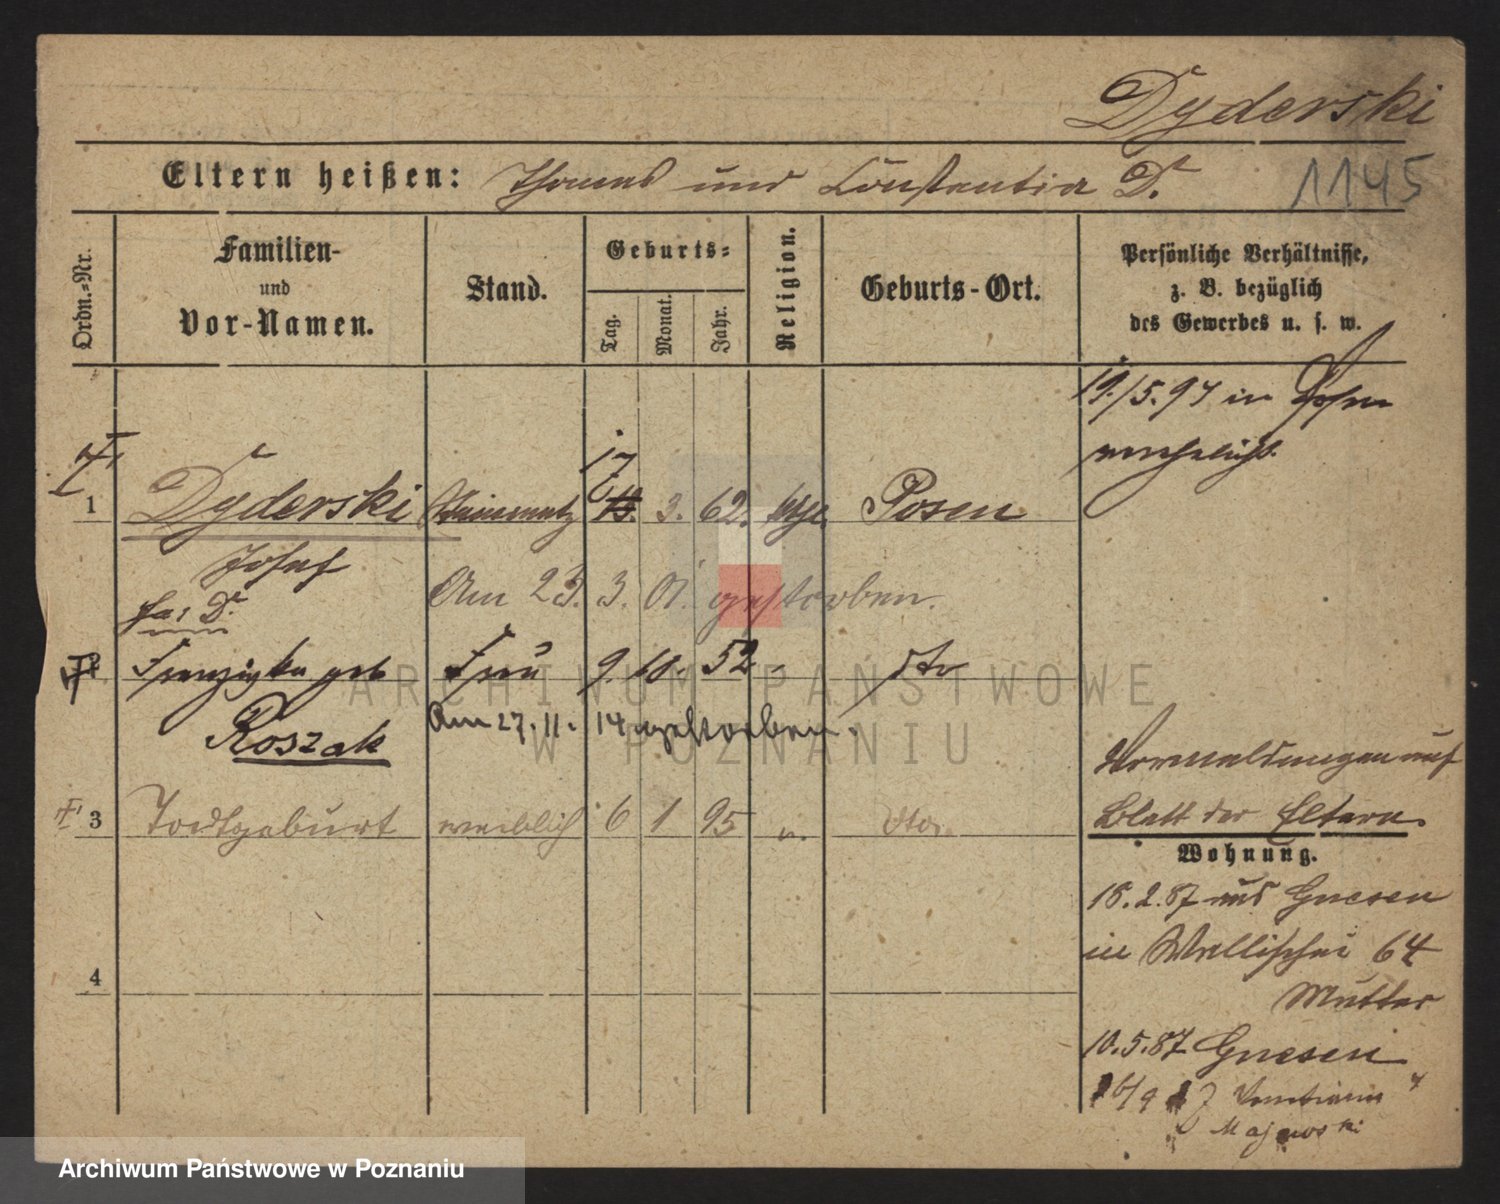 Dyderski
Eltern heißen: Thomas und Constantia D.
1145
Ordn.-Nr.
Familien-
und
Vor-Namen.
Stand.
Geburts-
Tag.
Monat.
Jahr.
Religion.
Geburts-Ort.
Persönliche Verhältnisse,
z. B. bezüglich
des Gewerbes u. s. w.
19./5.97 in Posen
verehelicht.
17
1 Dyderski 3. 62. Posen
Josef
Am 23. 3. 01. gestorben.
D.
geb Frau 9. 10. 52 dto
Roszak
Am 27. 11. 14 gestorben.
3 Todtgeburt weiblich 6 1 95 dto.
Vormeldungen auf
Blatt der Eltern.
Wohnung.
18.2.87 aus Gnesen
in Wallischei 64
Mutter
4
10.5.87 Gnesen
Majewski
ARCHIWUM PAŃSTWOWE
W POZNANIU
Archiwum Państwowe w Poznaniu